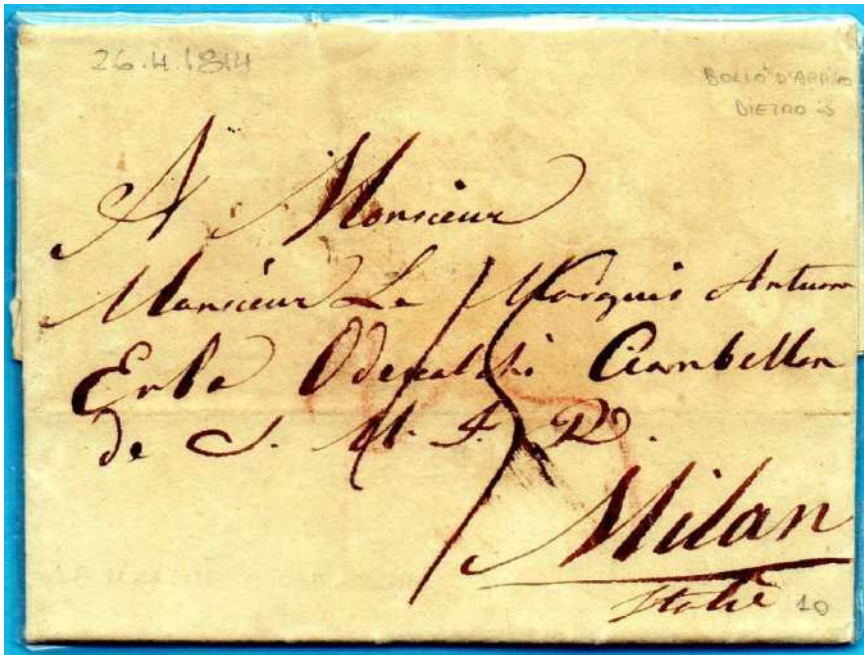 26.4.1814
BOLLO D'ARRIVO
DIETRO
A Monsieur
Monsieur Le Marquis Antoine
Erba Odescalchi Ciambellan
de S. M. I. R.
15
Milan
Italie
10